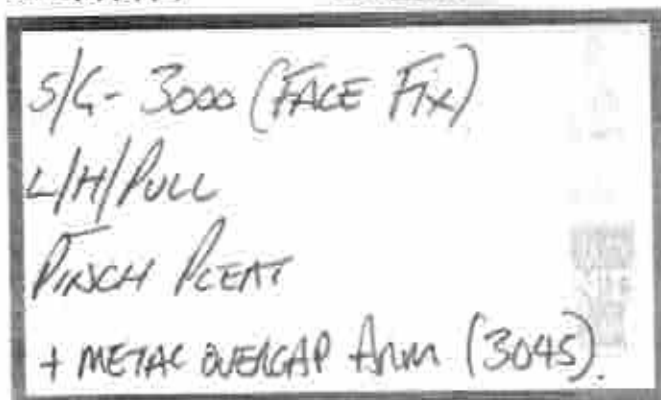 S/G - 3000 (FACE FIX)
L/H/PULL
PINCH PLEAT
+ METAL OVERLAP ARM (3045).